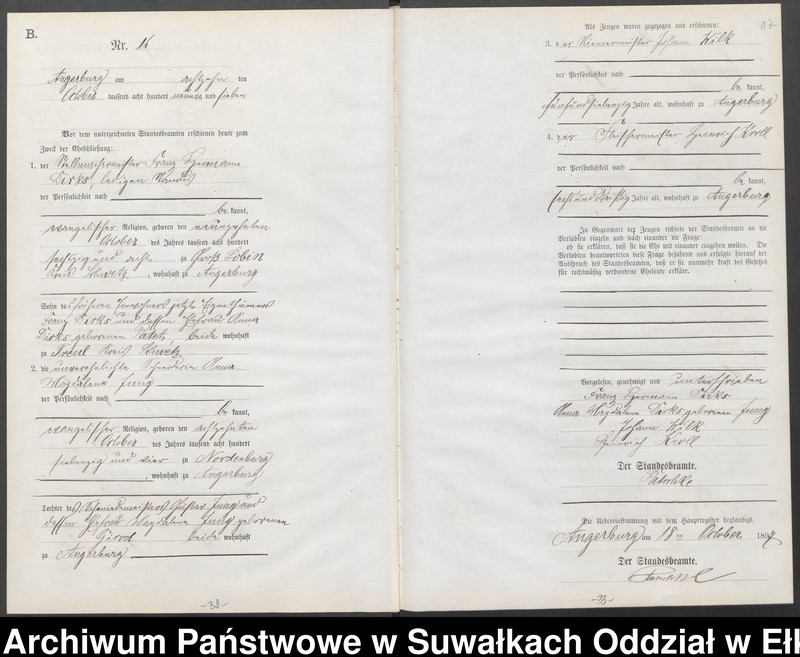 B.
Nr. 16
Angerburg am achtzehn ten
October tausend acht hundert neunzig und sieben
Vor dem unterzeichneten Standesbeamten erschienen heute zum
Zweck der Eheschließung:
1. der Franz Hermann
Dirks, ledigen Standes
der Persönlichkeit nach
be kannt,
evangelischer Religion, geboren den neunzehnten
October des Jahres tausend acht hundert
sechzig und acht zu Groß
Kreis Schwetz, wohnhaft zu Angerburg
Sohn des früheren jetzt Eigenthümers
Franz Dirks und dessen Ehefrau Anna
Dirks geborenen beide wohnhaft
zu Treul Kreis Schwetz
2. die unverehelichte Schneiderin Anna
Magdalena Jung
der Persönlichkeit nach
be kannt,
evangelischer Religion, geboren den achtzehnten
October des Jahres tausend acht hundert
siebenzig und vier zu Nordenburg
, wohnhaft zu Angerburg
Tochter des Schmiedemeisters Jung und
dessen Ehefrau Magdalena Jung geborenen
beide wohnhaft
zu Angerburg
-32-
17
Als Zeugen waren zugezogen und erschienen:
3. der Riemermeister Johann Kilk
der Persönlichkeit nach
be kannt,
fünfundsiebenzig Jahre alt, wohnhaft zu Angerburg
4. der Fleischermeister Heinrich Kroll
der Persönlichkeit nach
be kannt,
sechsunddreißig Jahre alt, wohnhaft zu Angerburg
In Gegenwart der Zeugen richtete der Standesbeamte an die
Verlobten einzeln und nach einander die Frage:
ob sie erklären, daß sie die Ehe mit einander eingehen wollen. Die
Verlobten beantworteten diese Frage bejahend und erfolgte hierauf der
Ausspruch des Standesbeamten, daß er sie nunmehr kraft des Gesetzes
für rechtmäßig verbundene Eheleute erkläre.
Vorgelesen, genehmigt und unterschrieben
Franz Hermann Dirks
Anna Magdalena Dirks geborene Jung
Johann Kilk
Heinrich Kroll
Der Standesbeamte.
Die Uebereinstimmung mit dem Hauptregister beglaubigt.
Angerburg am 18 ten October 1897
Der Standesbeamte.
-33-
Archiwum Państwowe w Suwałkach Oddział w Ełk